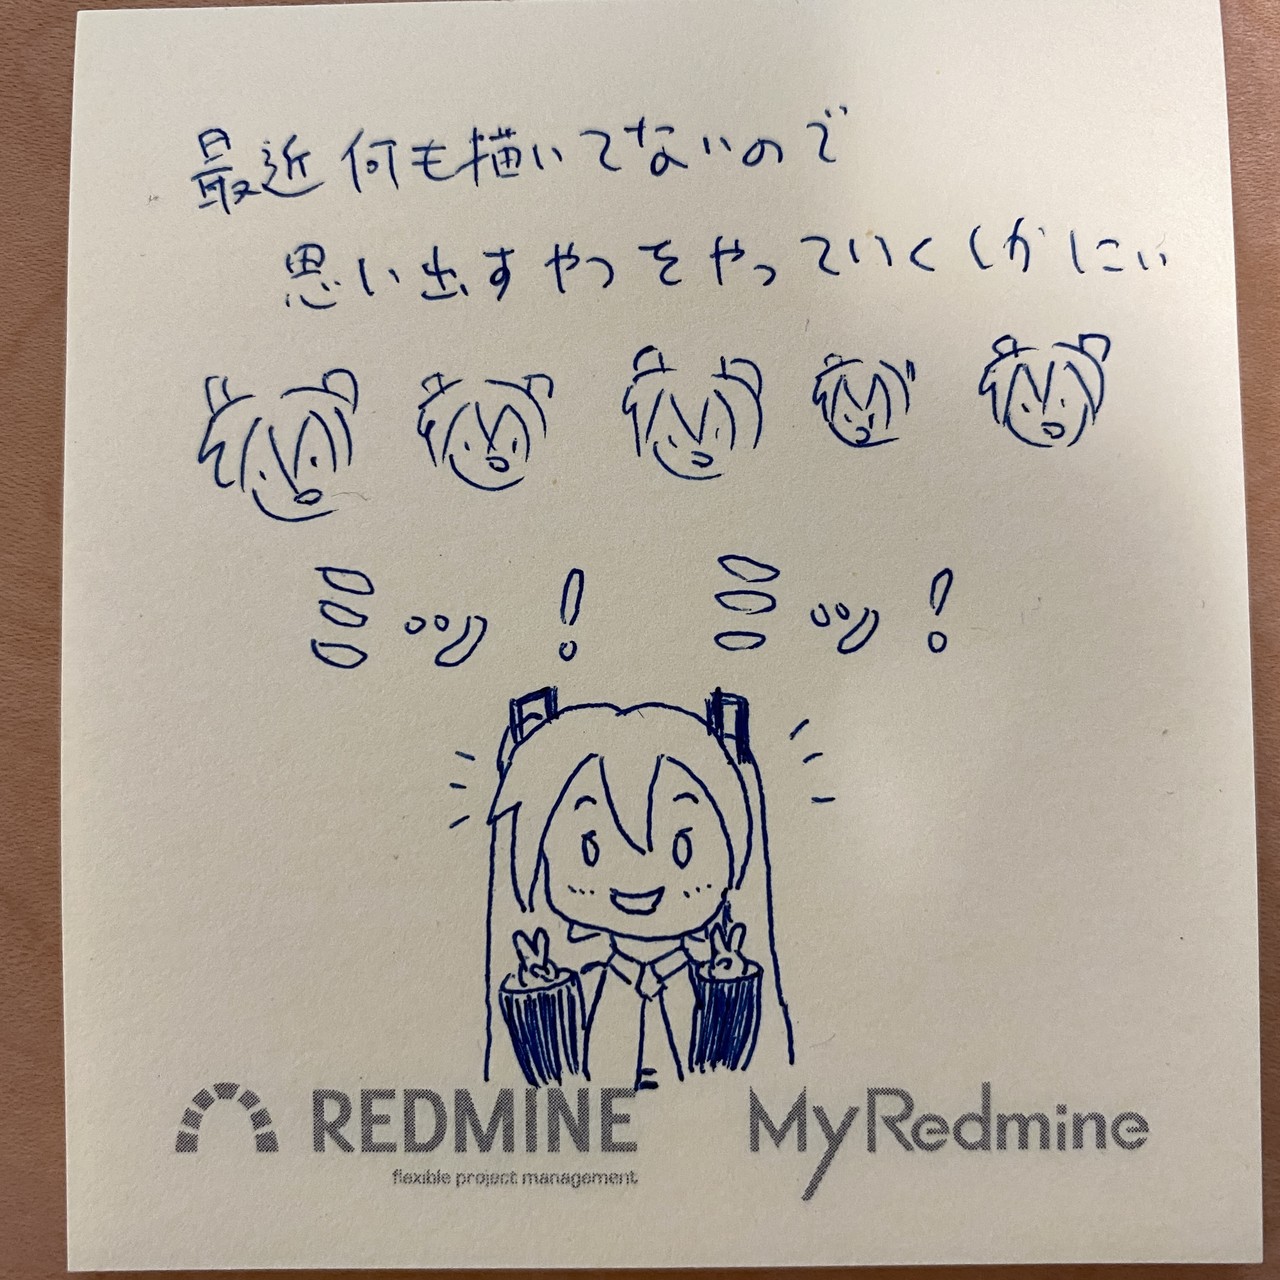 最近何も描いてないので
思い出すやつをやっていくしかにぃ
ミッ! ミッ!
REDMINE
flexible project management
MyRedmine